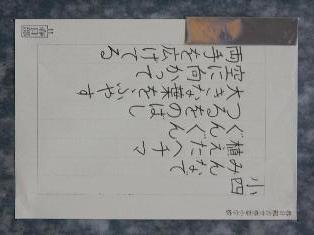 小四
みんなで
植えたヘチマ
ぐんぐん
つるをのばし
大きな葉をふやす
空に向かって
両手を広げてる